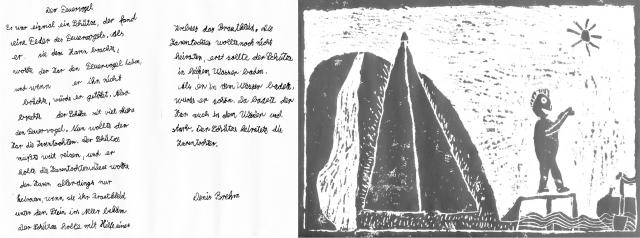 Der Feuervogel
Es war einmal ein Schütze, der fand
eine Feder des Feuervogels. Als
er sie dem Zaren brachte,
wollte der Zar den Feuervogel haben,
und wenn er ihn nicht
brächte, würde er getötet. Also
brachte der Schütze mit viel
den Feuervogel. Nun wollte der
Zar die Zarentochter. Der Schütze
mußte weit reisen, und er
holte die Zarentochter. wollte
den Zaren allerdings nur
heiraten, wenn sie ihr Brautkleid
unter dem Stein im Meer bekäm.
Der Schütze holte mit Hilfe eines
das Brautkleid. Die
Zarentochter wollte noch nicht
heiraten, erst sollte der Schütze
in heißem Wasser baden.
Als er in dem Wasser badete,
wurde er schön. Da badete der
Zar auch in dem Wasser und
starb. Der Schütze heiratete die
Zarentochter.
Denis Brehm